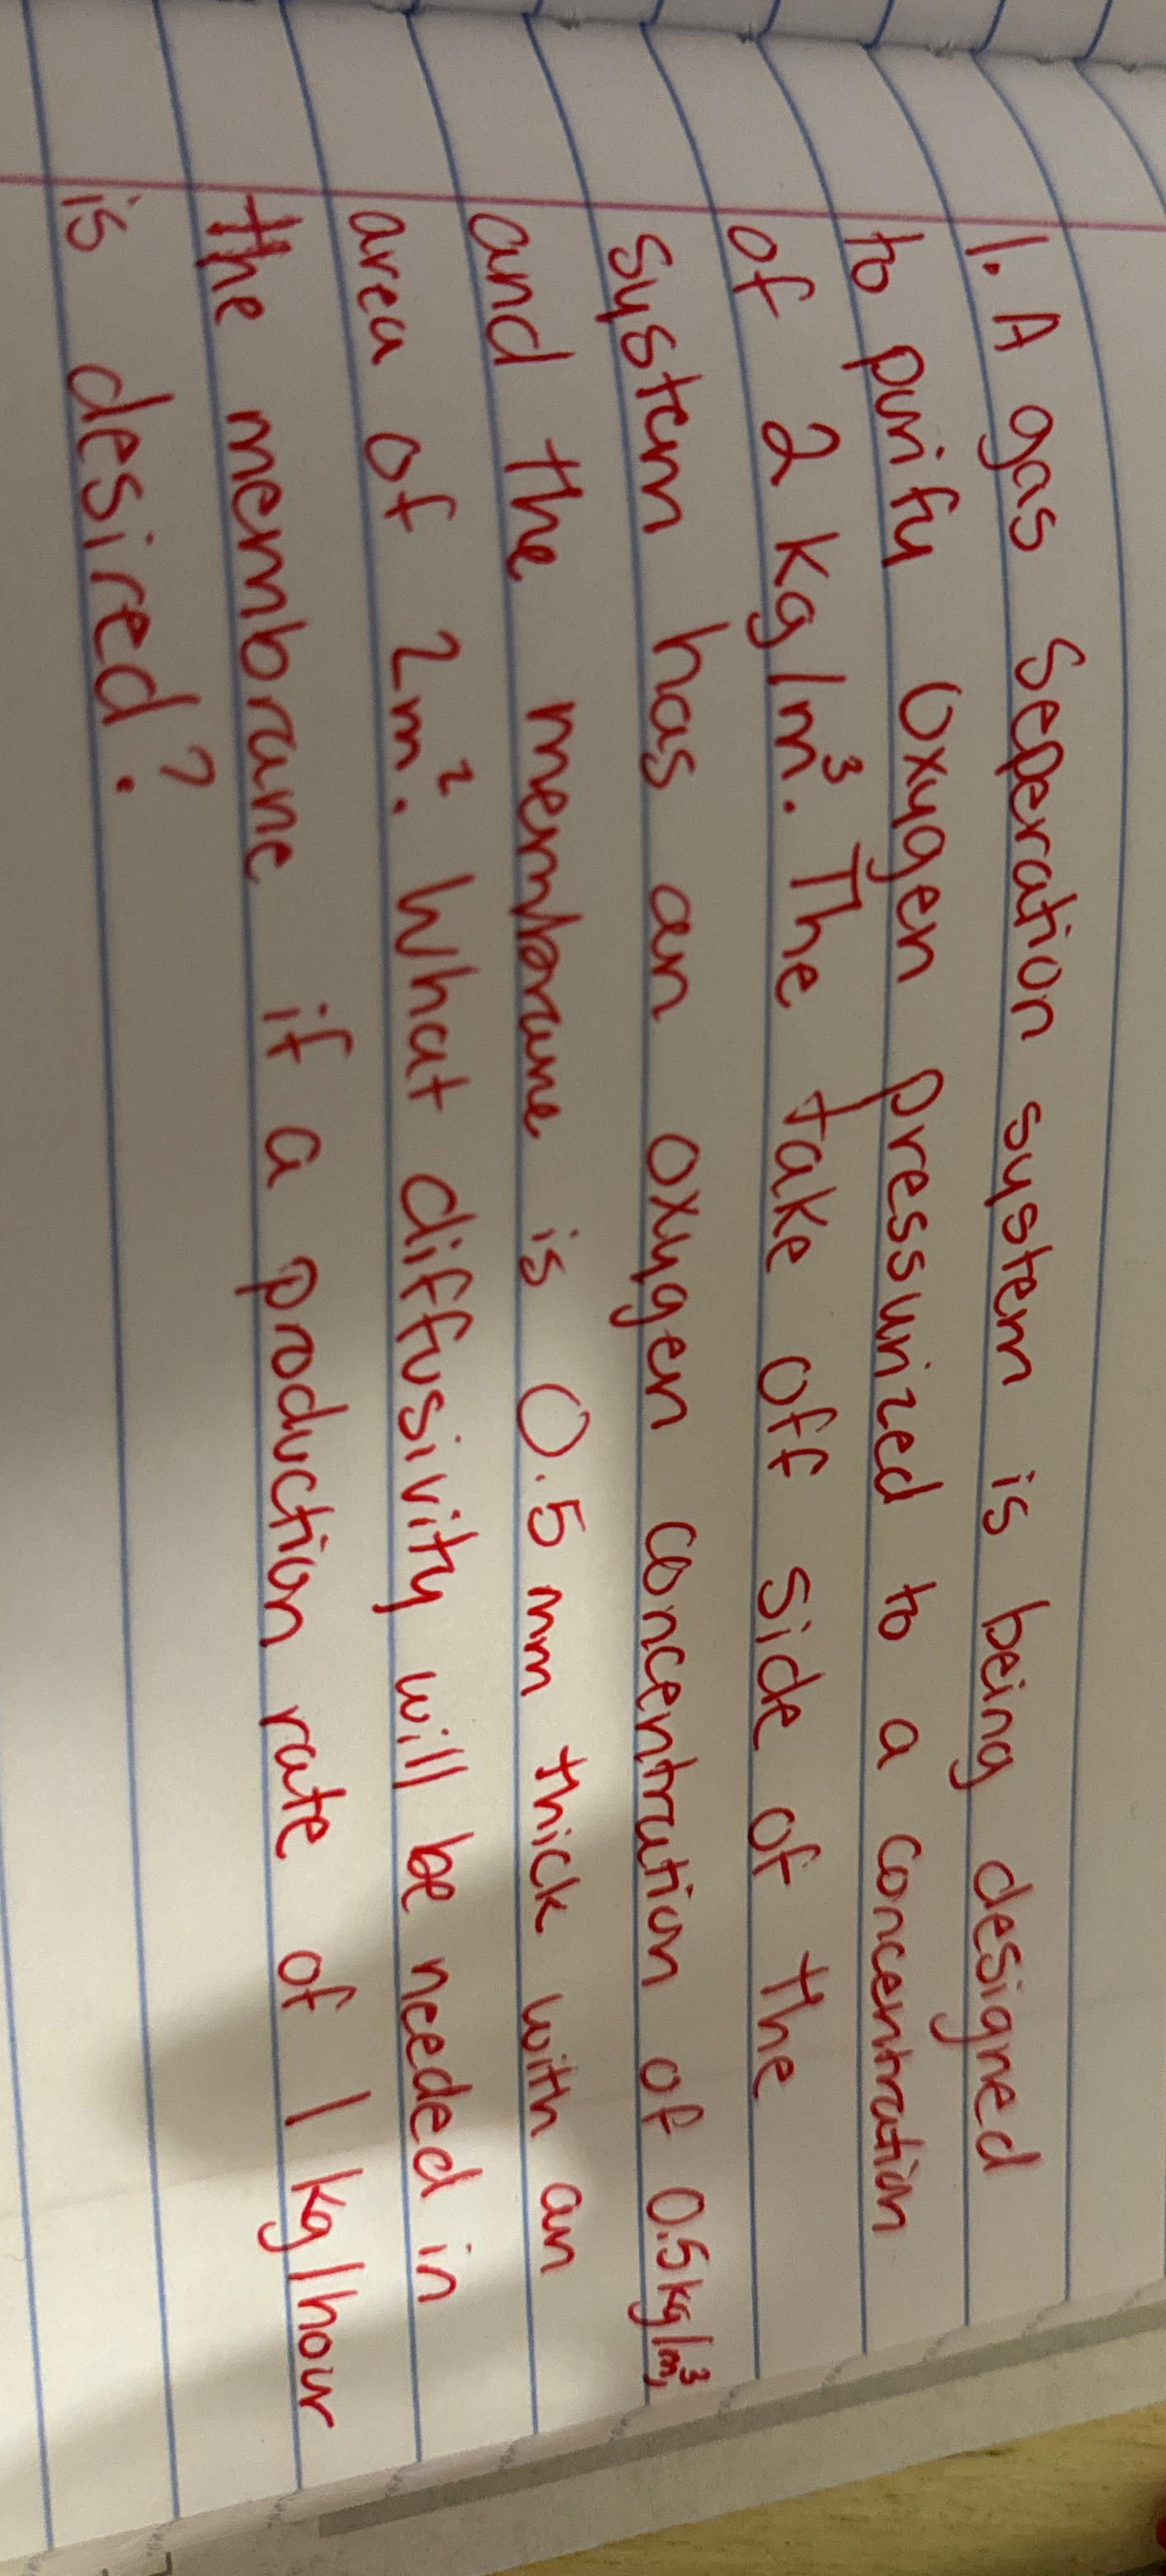 1. A gas Seperation system is being designed
to purify Oxygen pressurized to a concentration
of 2 kg/m³. The take off side of the
system has an oxygen concentration of 0.5kg/m³,
and the membrane is 0.5 mm thick with an
area of 2m². What diffusivity will be needed in
the membrane if a production rate of 1 kg/hour
is desired?